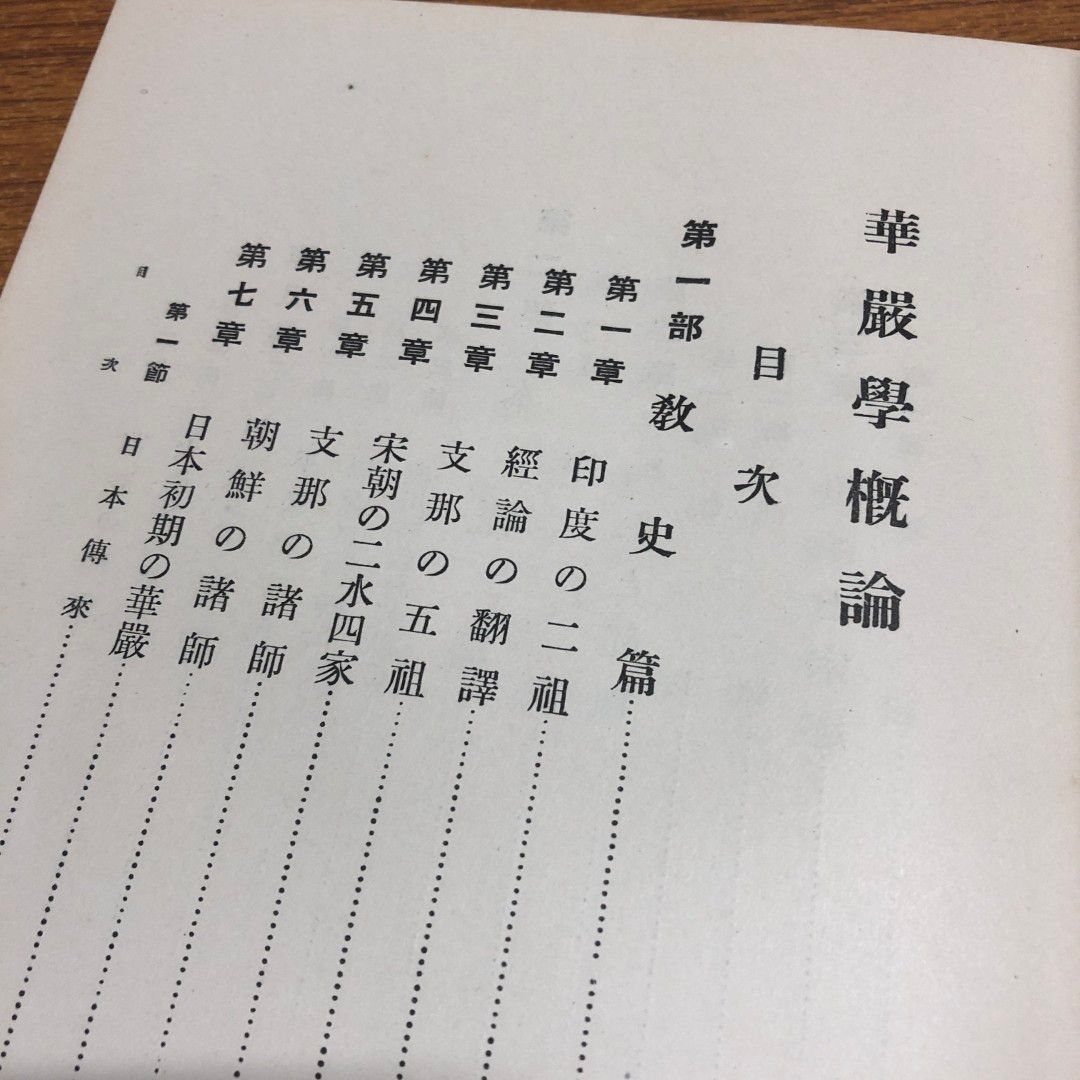 華嚴學槪論
目次
第一部 敎史篇
第一章 印度の二祖
第二章 經論の翻譯
第三章 支那の五祖
第四章 宋朝の二水四家
第五章 支那の諸師
第六章 朝鮮の諸師
第七章 日本初期の華嚴
第一節 日本傳來
目次